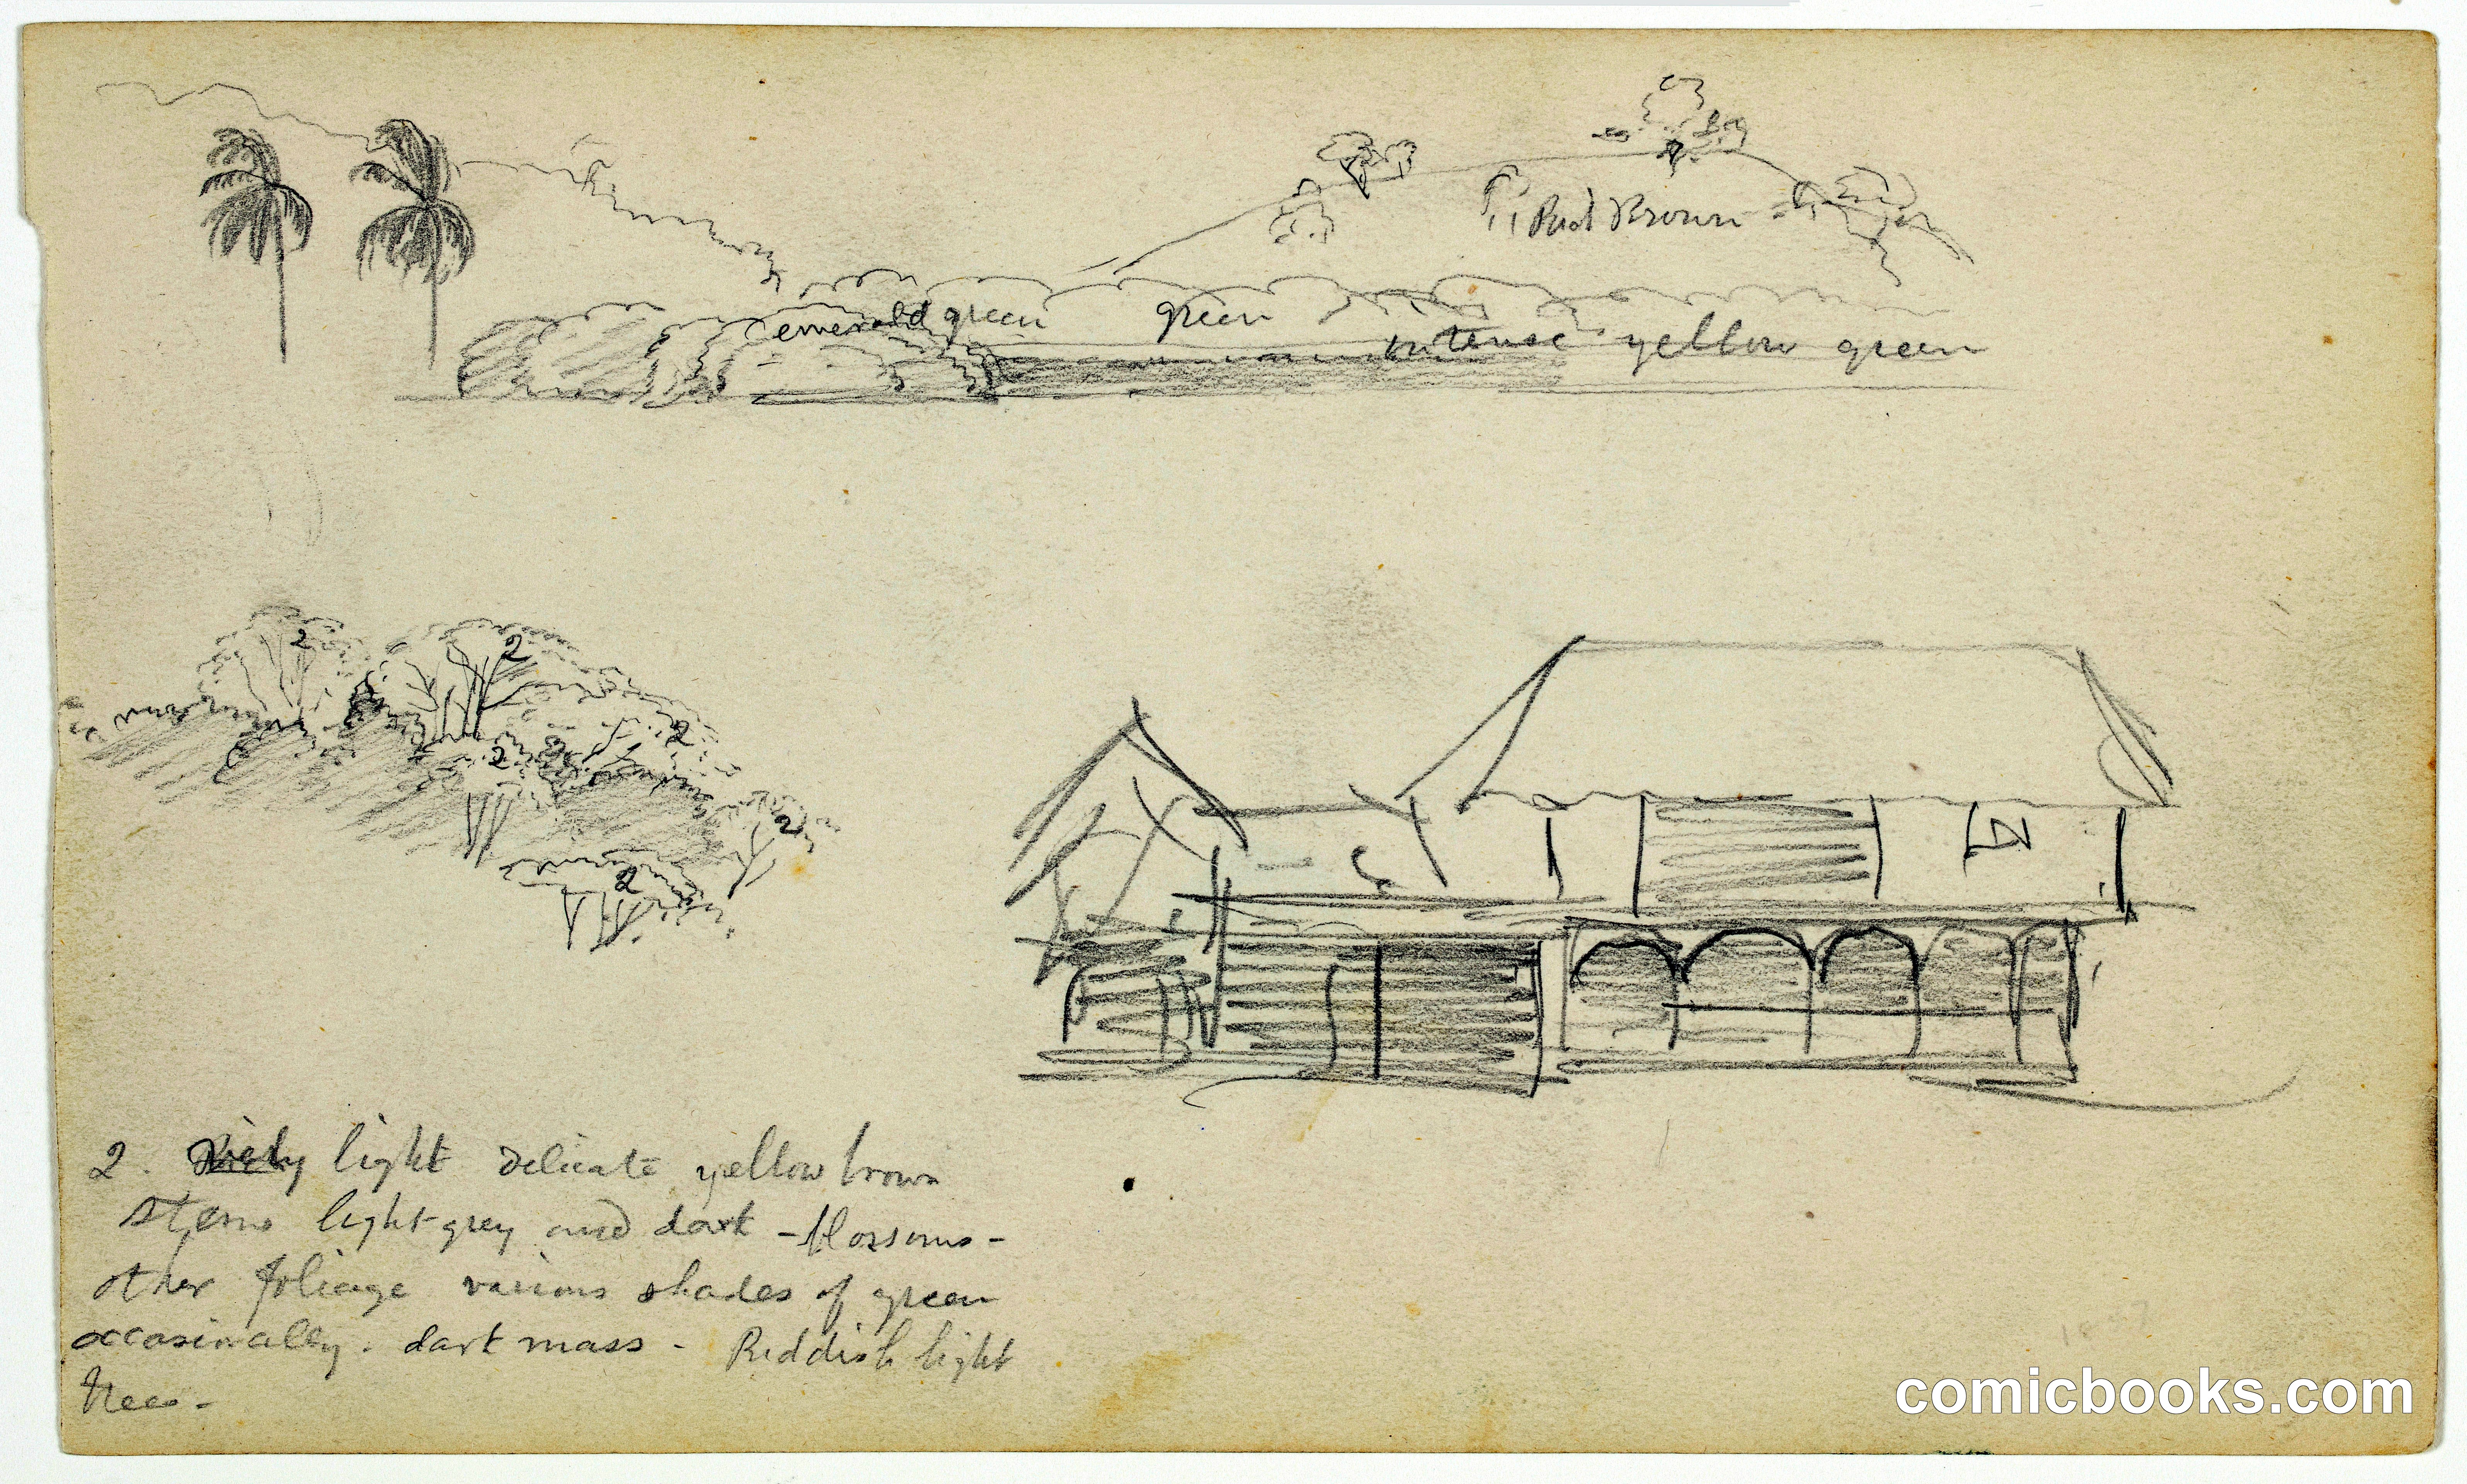 Red Brown
emerald green
green
intense yellow green
2
2
2
2
2
2
2. light delicate yellow brown
stems light grey and dark - blossoms -
other foliage various shades of green
occasionally. dark mass - Reddish light
trees -
comicbooks.com